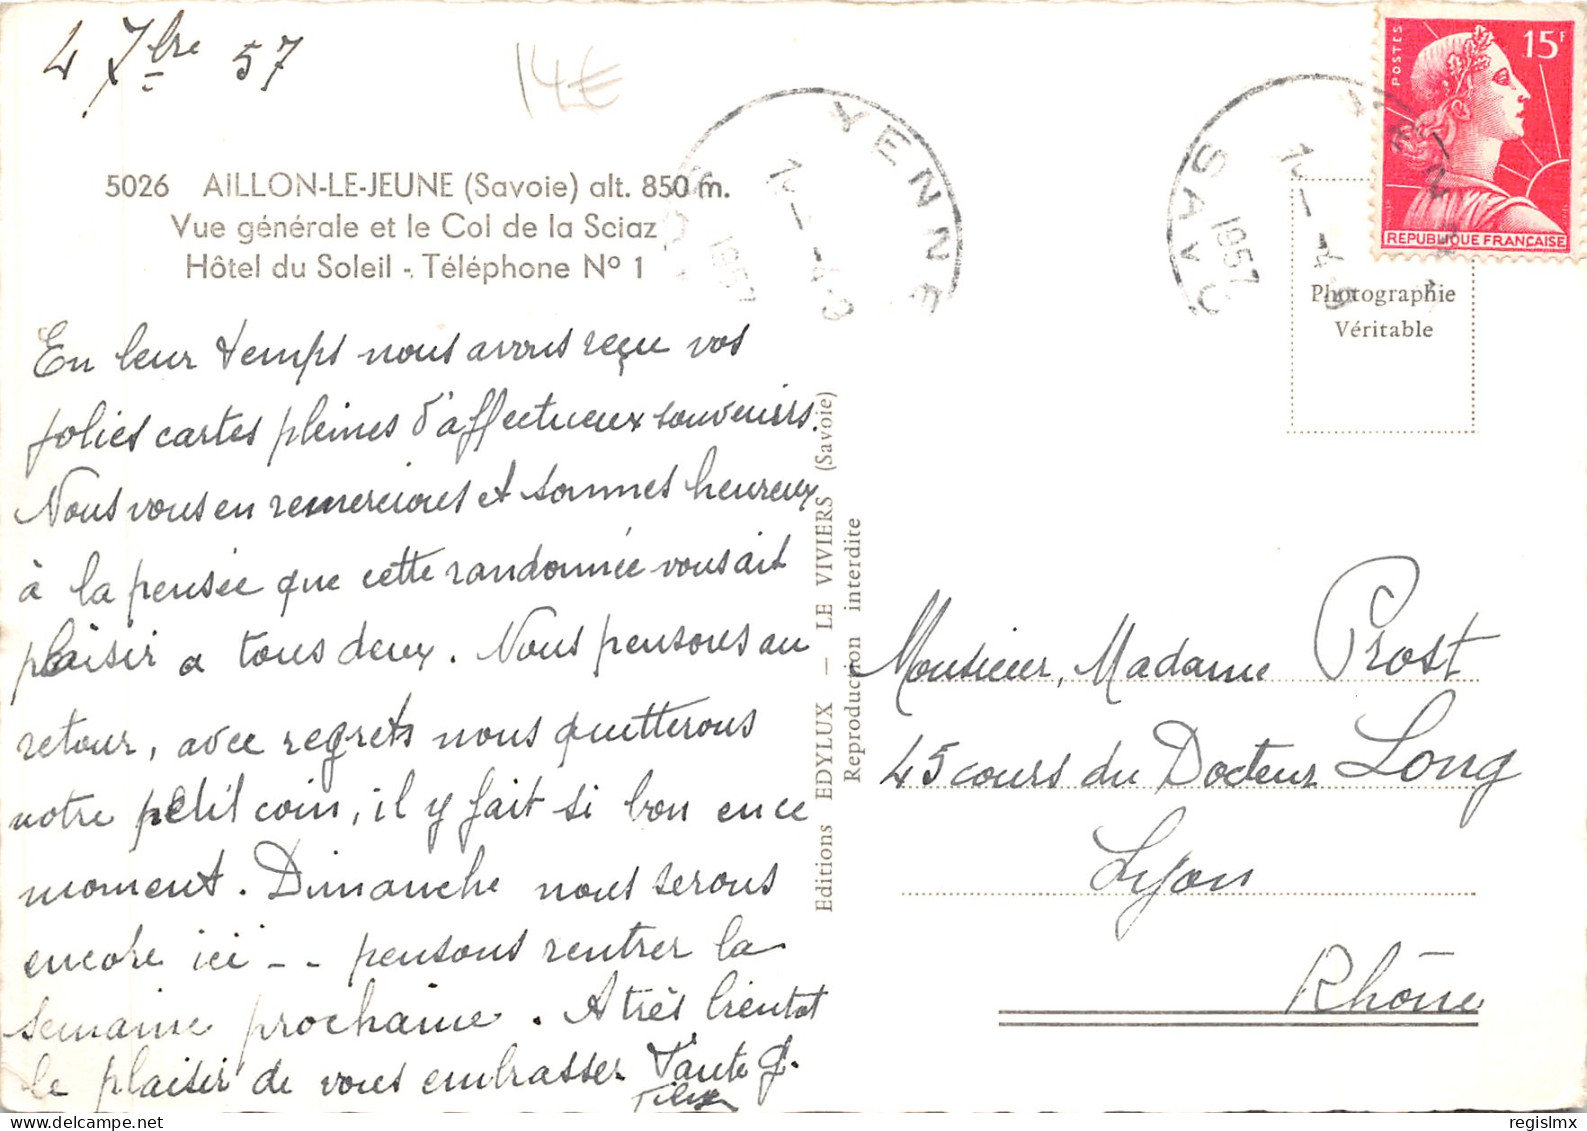 4 7bre 57
14€
5026 AILLON-LE-JEUNE (Savoie) alt. 850 m.
Vue générale et le Col de la Sciaz
Hôtel du Soleil - Téléphone N° 1
En leur temps nous avons reçu vos
jolies cartes pleines d'affectueux souvenirs.
Nous vous en remercions et sommes heureux
à la pensée que cette randonnée vous ait
plaisir a tous deux. Nous pensons au
retour, avec regrets nous quitterons
notre petit coin, il y fait si bon en ce
moment. Dimanche nous serons
encore ici -- pensons rentrer la
semaine prochaine. A très bientot
le plaisir de vous embrasser Tante J.
Editions EDYLUX — LE VIVIERS (Savoie)
Reproduction interdite
YENNE
SAVO
1957
YENNE
SAVO
1957
POSTES
15F
REPUBLIQUE FRANÇAISE
Photographie
Véritable
Monsieur, Madame Prost
45 cours du Docteur Long
Lyon
Rhône
regislmx
delcampe.net